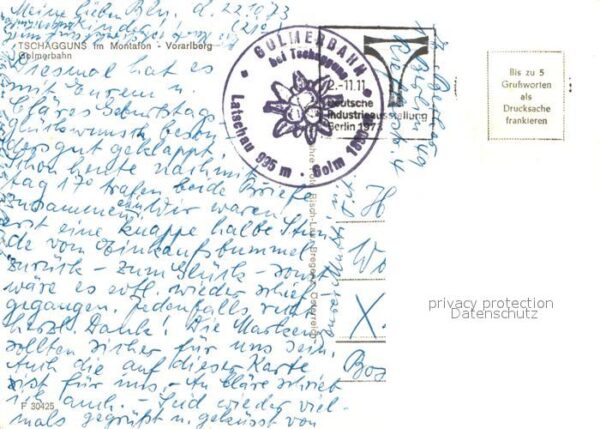 Meine lieben Bln, d. 22.10.73
TSCHAGGUNS im Montafon - Vorarlberg
Golmerbahn
Diesmal hat es
mit Eurem u.
Kläre Geburtstags
glückwunsch beson
ders gut geklappt.
Schon heute nachmit
tag 17° trafen beide Briefe
zusammen ein. Wir waren
erst eine knappe halbe Stun
de vom Einkaufsbummel
zurück - zum Glück - sonst
wäre es evtl. wieder schief
gegangen. Jedenfalls recht
herzl. Dank! Die Marken
sollten sicher für uns sein.
Auch die auf dieser Karte
ist für uns. - An Kläre schrieb
ich auch. - Seid wieder viel-
mals gegrüßt u. geküsst von
F 30425
GOLMERBAHN
bei Tschagguns
Latschau 995 m · Golm 1890
2.-11.11
Deutsche
Industrieausstellung
Berlin 1973
Bis zu 5
Grußworten
als
Drucksache
frankieren
H
Wo
X.
Bos
privacy protection
Datenschutz